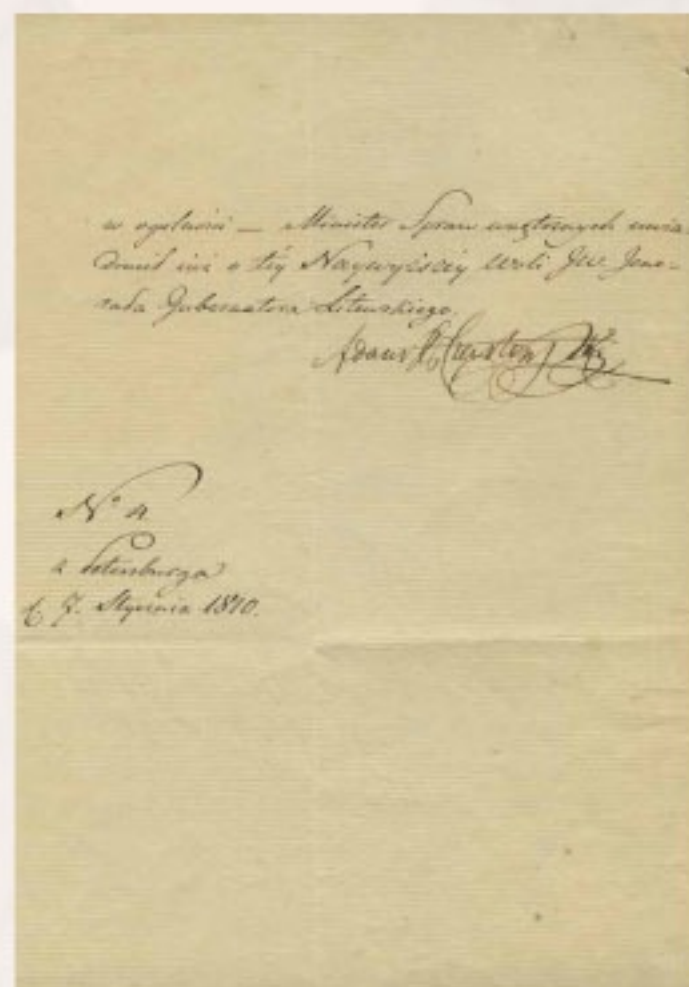 w ogólności — Minister Spraw wnętrznych uwia-
domił już o téy Naywyższéy Woli JW. Jene-
rała Gubernatora Litewskiego.
Adam X. Czartoryski
N° 4
z Petersburga
d. 7. Stycznia 1810.